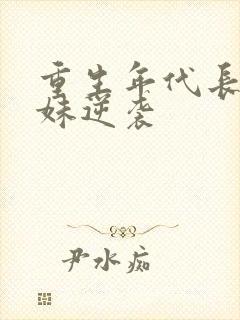 重生年代長
妹逆袭
尹水痴